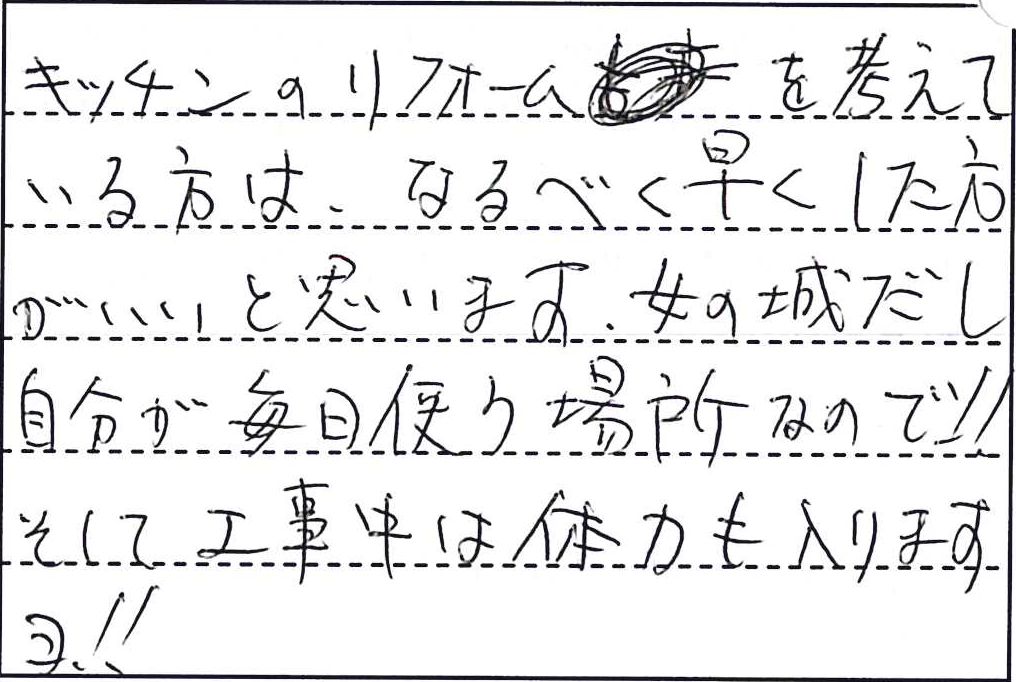 キッチンのリフォームを考えて
いる方は、なるべく早くした方
がいいと思います。女の城だし
自分が毎日使う場所なので!!
そして工事中は体力も入ります
ヨ!!